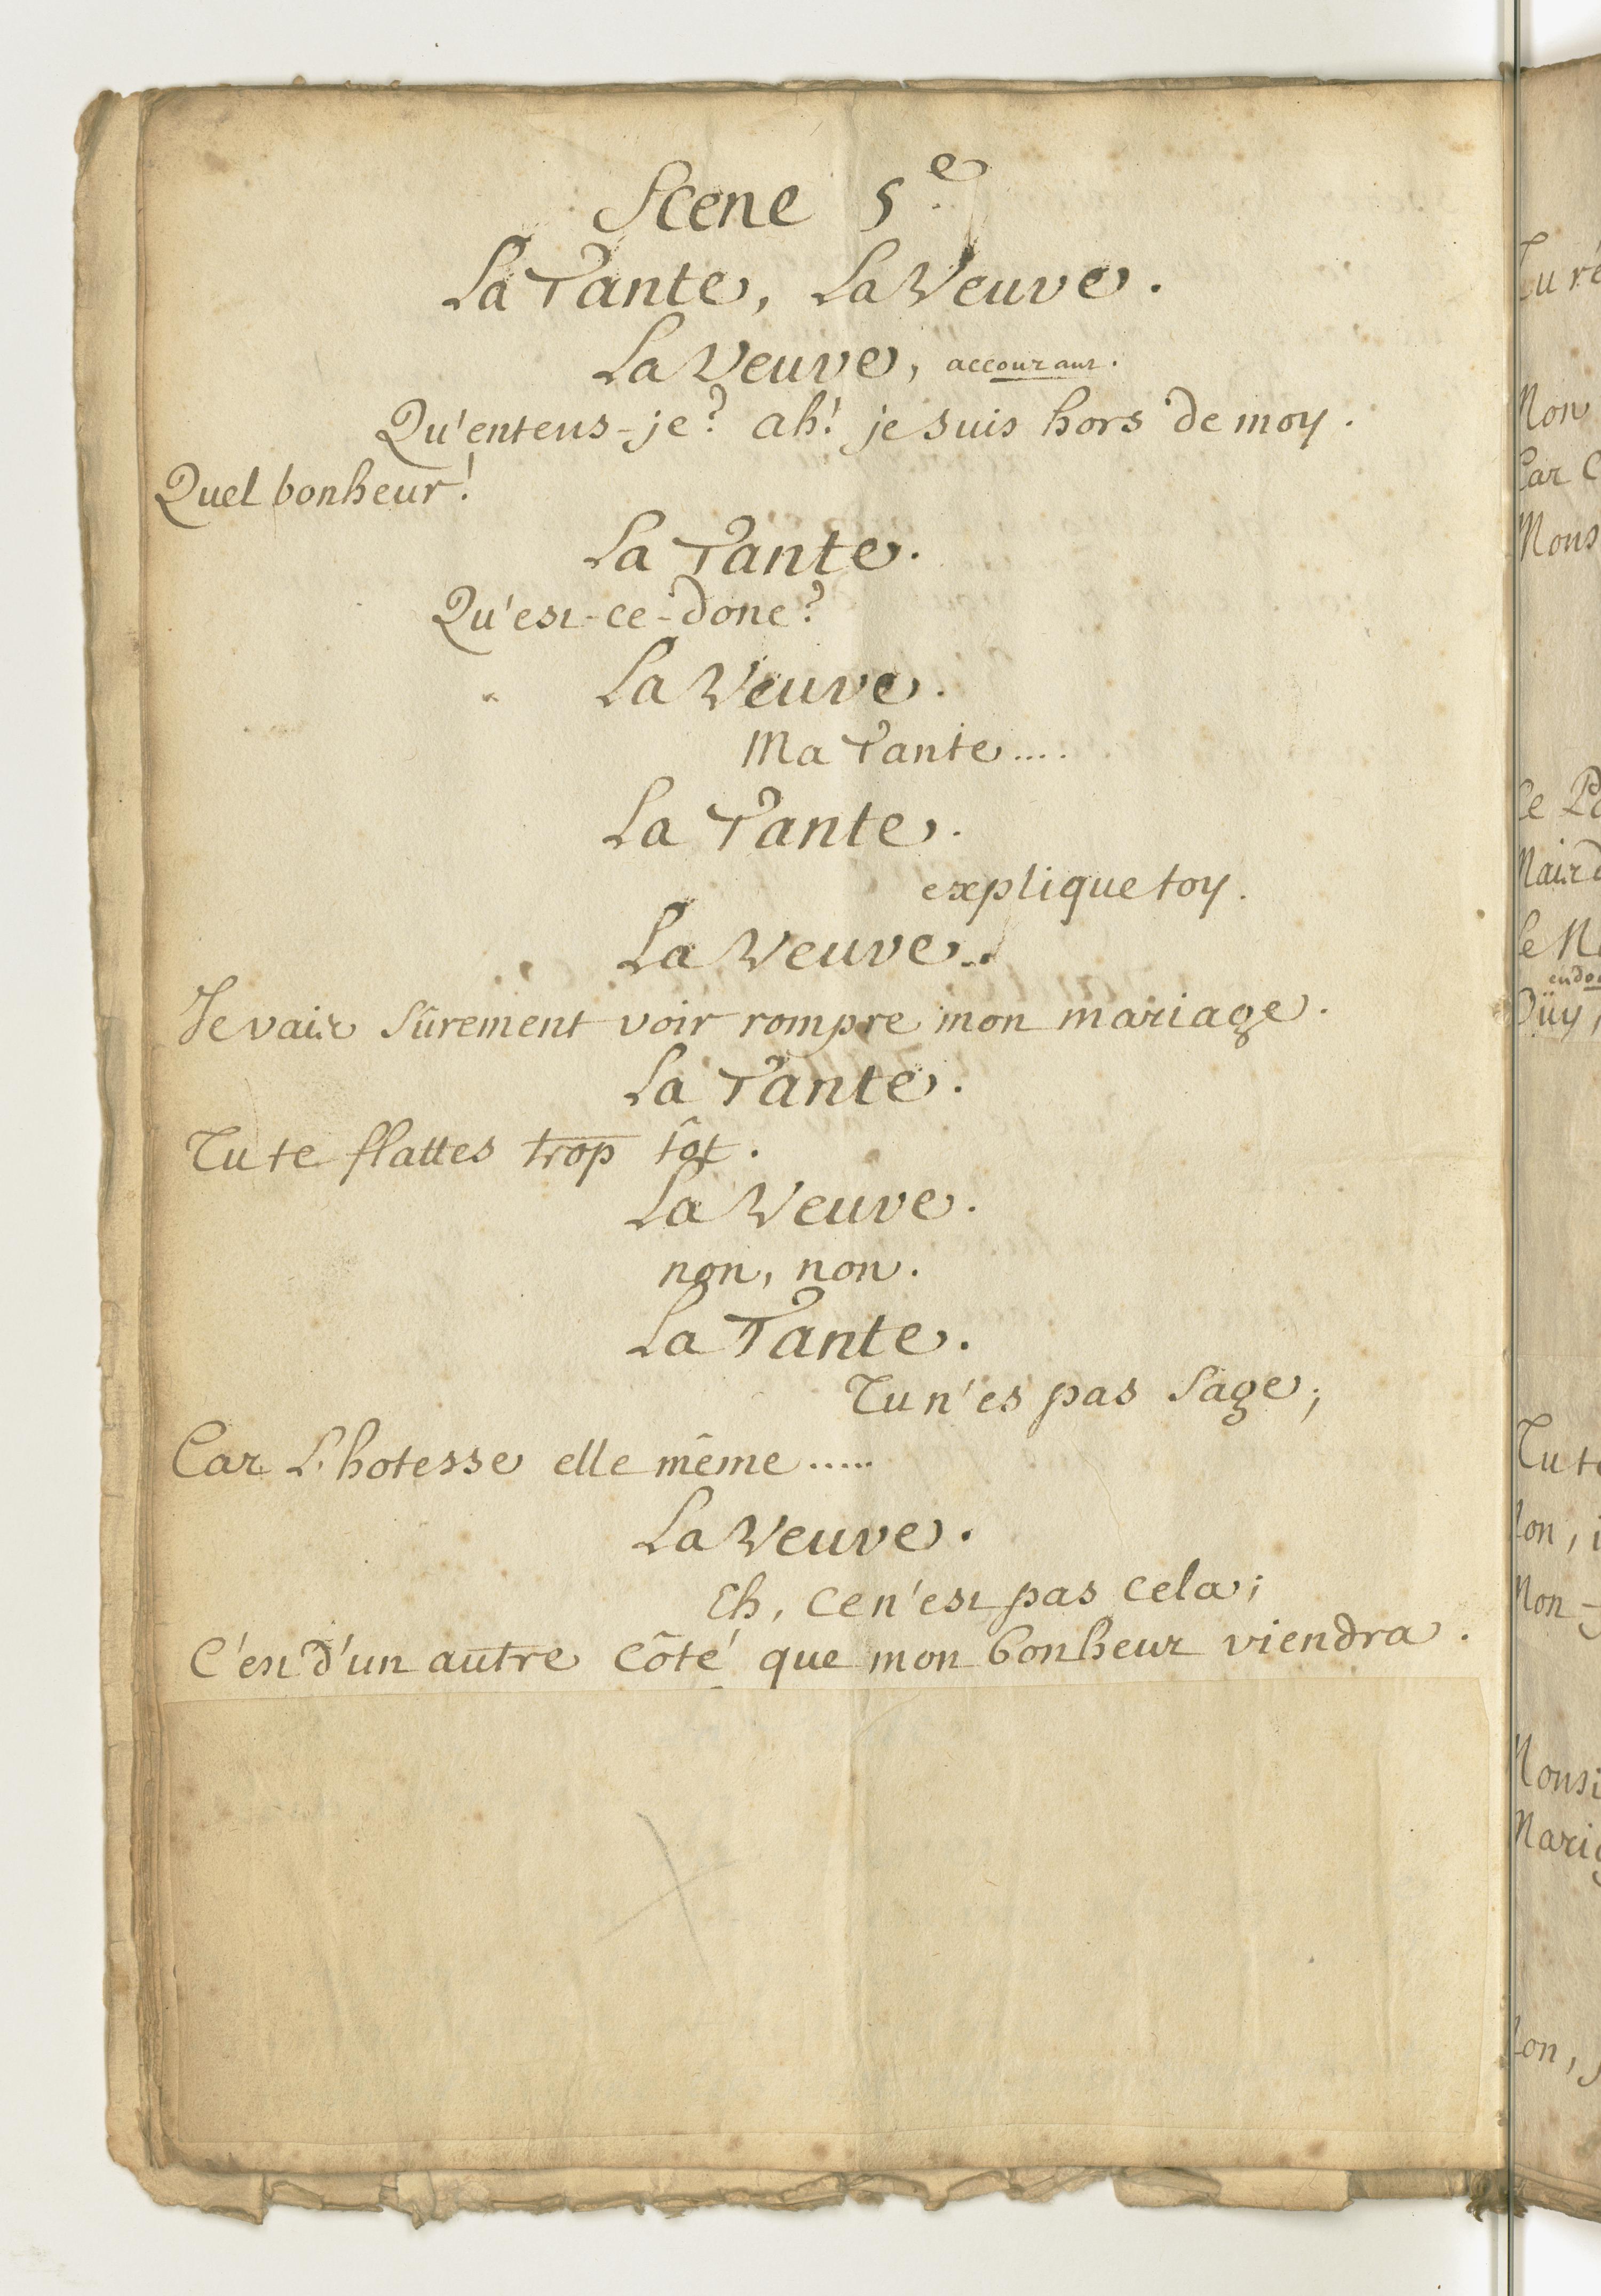 Scene 5e.
La Tante, La Veuve.
La Veuve, accourant.
Qu'entens-je? ah! je suis hors de moy.
Quel bonheur!
La Tante.
Qu'est-ce-donc?
La Veuve.
Ma Tante....
La Tante.
explique toy.
La Veuve.
Je vais sûrement voir rompre mon mariage.
La Tante.
Tu te flattes trop tôt.
La Veuve.
non, non.
La Tante.
Tu n'es pas sage;
Car L'hotesse elle même.....
La Veuve.
Eh, ce n'est pas cela;
C'est d'un autre côté que mon bonheur viendra.
Non
Car
Tu